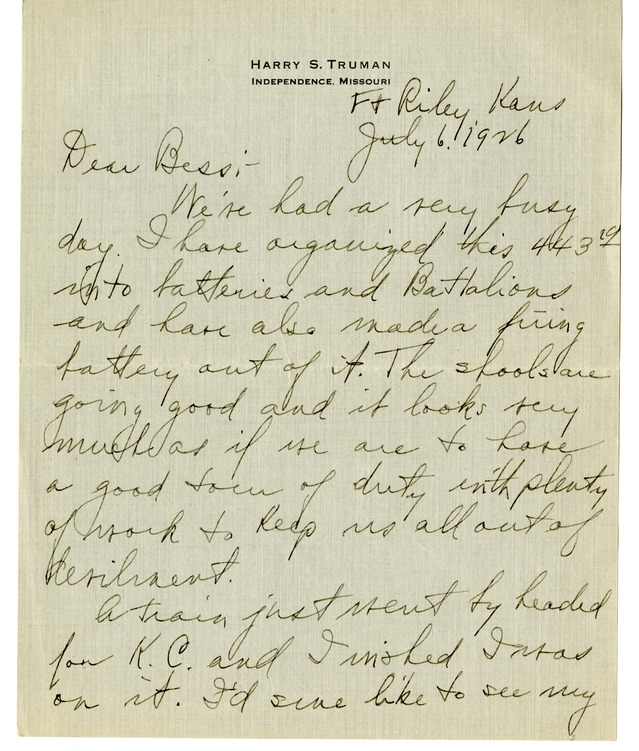 HARRY S. TRUMAN
INDEPENDENCE, MISSOURI
Ft Riley Kans
July 6, 1926
Dear Bess:-
We've had a very busy
day. I have organized this 443rd
into batteries and Battalions
and have also made a firing
battery out of it. The shools are
going good and it looks very
much as if we are to have
a good tour of duty with plenty
of work to keep us all out of
devilment.
A train just went by headed
for K.C. and I wished I was
on it. I'd sure like to see my